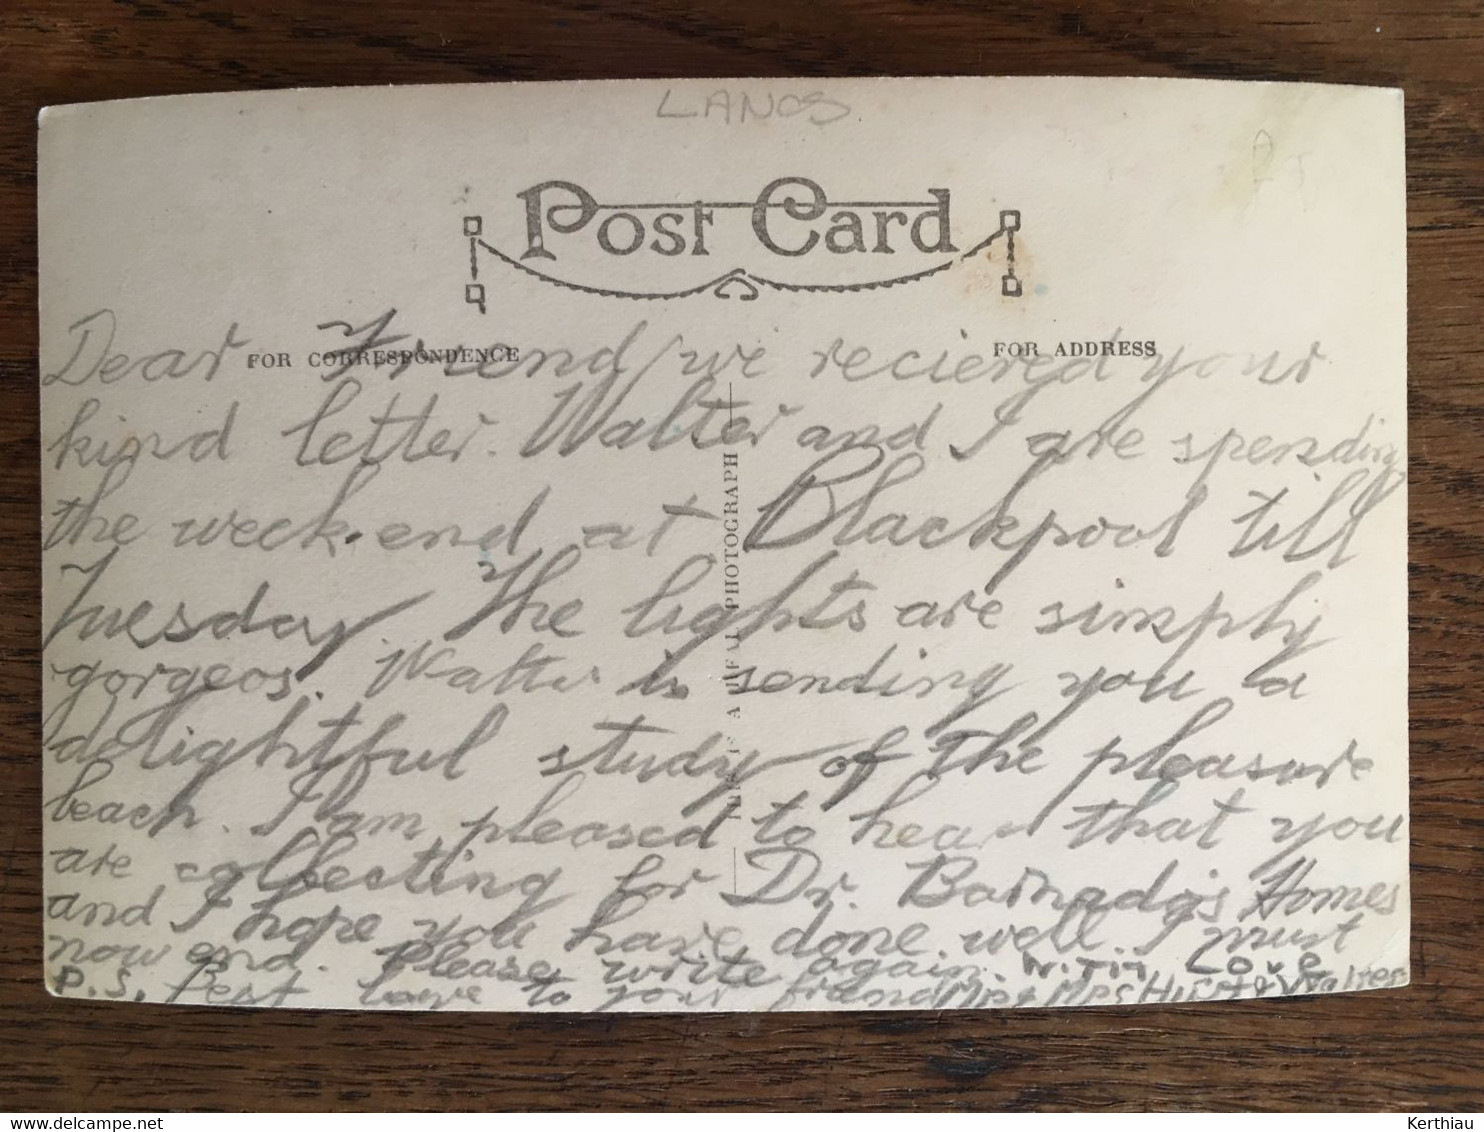 LANCS
Post Card
FOR CORRESPONDENCE
FOR ADDRESS
Dear Friend we reciered your
kind letter. Walter and I are spending
the week-end at Blackpool till
Tuesday The lights are simply
gorgeos. Walter is sending you a
delightful study of the pleasure
beach. I am pleased to hear that you
are collecting for Dr. Barnado's Homes
and I hope you have done well. I must
now end. Please write again. With Love
P.S. Best love to your friend Mr & Mrs & Walter
PHOTOGRAPH
Kerthiau